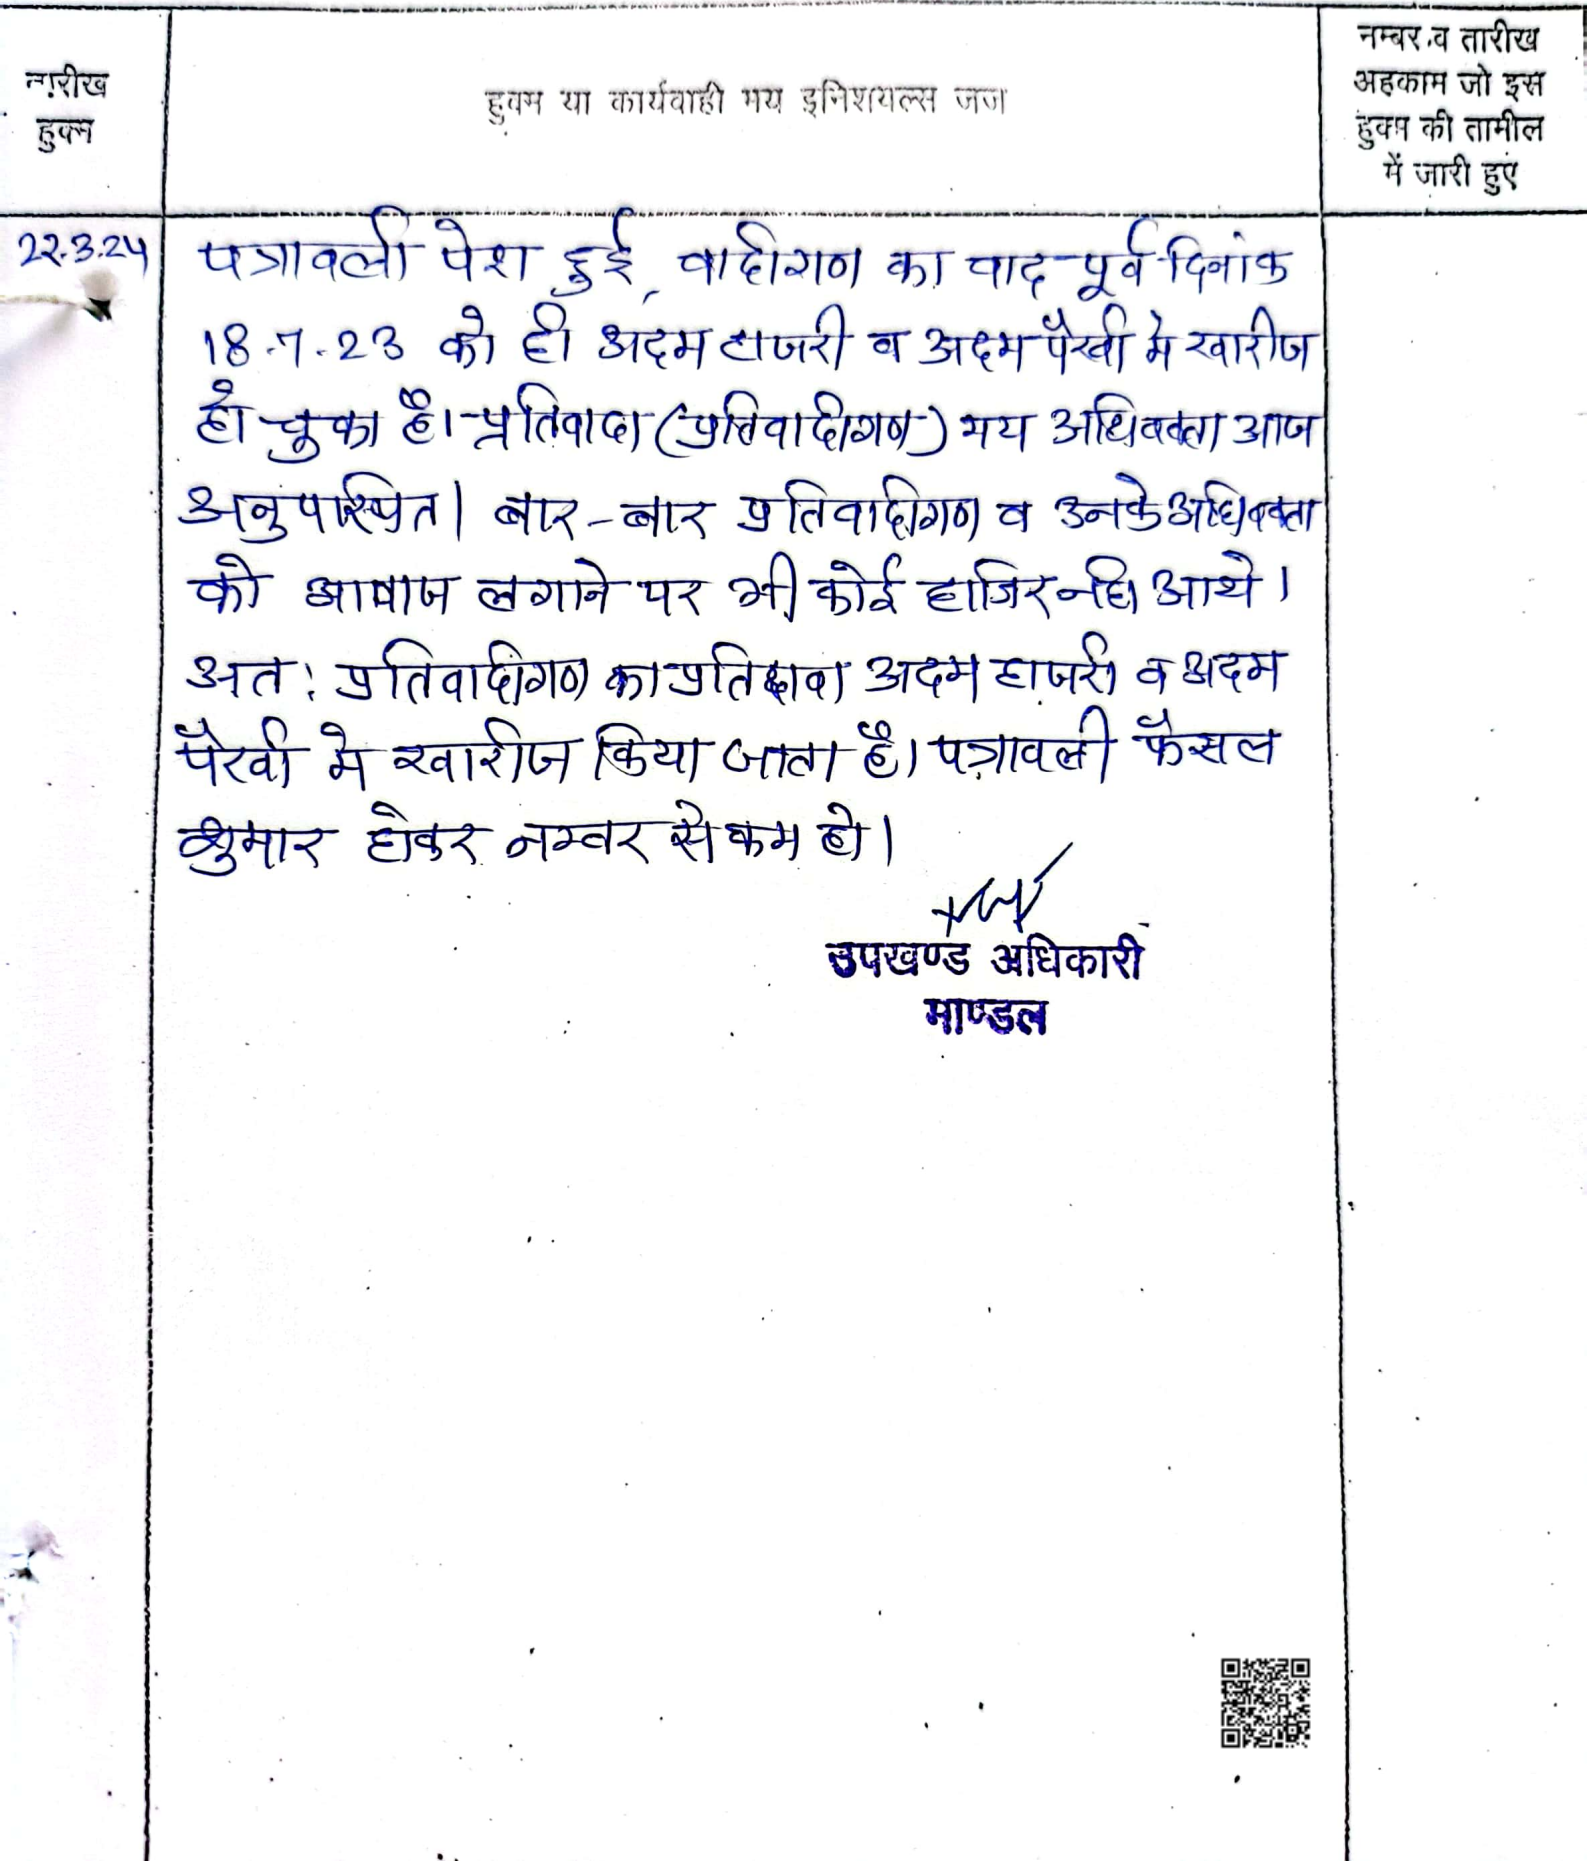 तारीख
हुक्म
हुक्म या कार्यवाही मय इनिशयल्स जज
नम्बर व तारीख
अहकाम जो इस
हुक्म की तामील
में जारी हुए
22.3.24
पत्रावली पेश हुई, वादीगण का वाद पूर्व दिनांक
18.7.23 को ही अदम हाजरी व अदम पैरवी मे खारीज
हो चुका है। प्रतिवादा (प्रतिवादीगण) मय अधिवक्ता आज
अनुपस्थित। बार-बार प्रतिवादीगण व उनके अधिवक्ता
को आवाज लगाने पर भी कोई हाजिर नहि आये।
अत: प्रतिवादीगण का प्रतिदावा अदम हाजरी व अदम
पैरवी मे खारीज किया जाता है। पत्रावली फैसल
शुमार होकर नम्बर से कम हो।
उपखण्ड अधिकारी
माण्डल